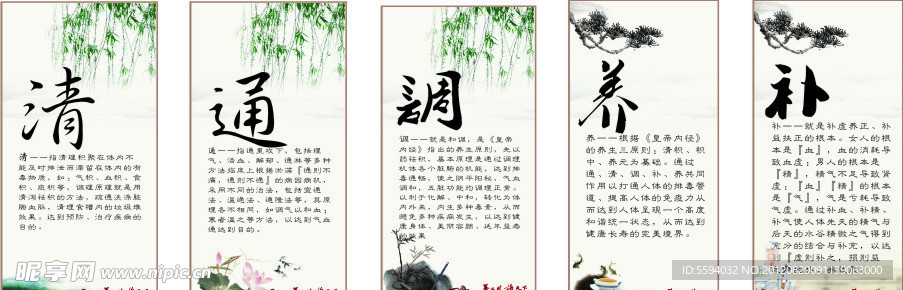 清
清——指清理积聚在体内不
能及时排汝而滞留在体内的有
毒物质，如：气积、血积、食
积、痰积等，调理原理就是用
清泻祛积的方法，疏通洗涤脏
腑血脉，清理食槽内的垃圾堆
效果，达到预防、治疗疾病的
目的。
通
通——指通里攻下，包括理
气、活血、解郁、通淋等多种
方法临床上根据淤滞『通则不
痛，通则不通』的病因病机，
采用不同的治法，包括宣通
法、温通法、通隆法等，其原
理各不相同，如调气以和血；
寒者温之等方法，以达到气血
通达到目的。
調
调——就是和调，是《皇帝
内经》指出的养生原则，先以
药祛积，基本原理是通过调理
机体各个脏腑的机能，达到排
毒通畅，使之阴平阳秘，气血
调和，五脏功能均调理正常。
以利于化解、中和，转化为体
内外来，内生多种毒素，从而
避免多种疾病发生，以达到健
康身体、美丽容颜、延年益寿
的效果
养
养——根据《皇帝内径》
的养生三原则；清积、积
中、养元为基础。通过
通、清、调、补、养共同
作用以打通人体的排毒管
道、提高人体的免疫力从
而达到人体呈现一个高度
和谐统一状态，从而达到
健康长寿的完美境界。
补
补——就是补虚养正、补
益扶正的根本。女人的根
本是『血』，血的消耗导
致血虚；男人的根本是
『精』，精气不足导致肾
虚；『血』『精』的根本
是『气』，气是亏耗导致
气虚。通过补血、补精、
补气使人体先天的精气与
后天的水谷精微之气得到
充分的结合与补充，以达
到『虚则补之，损则益
昵享网 www.nipic.cn
ID:5594032 NO:20120629091139063000